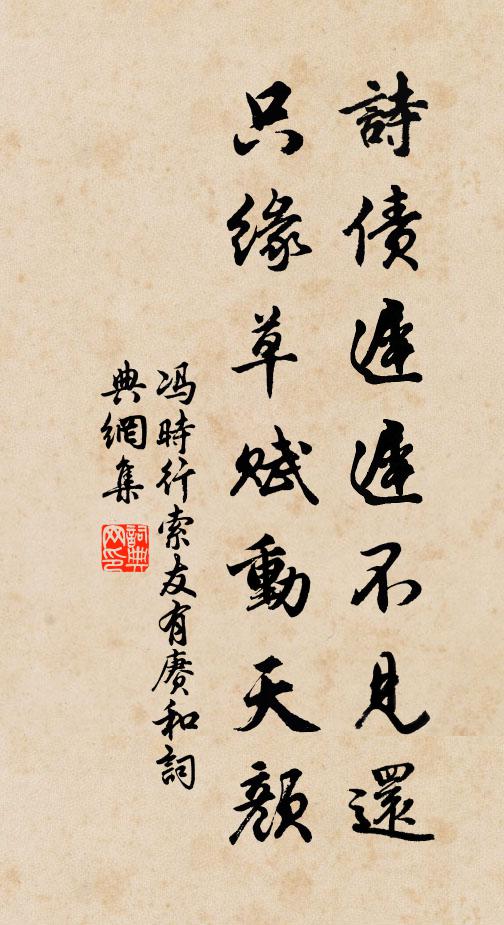 詩債遲遲不見還
只緣草賦動天顏
冯時行索友有賡和詞
典網集
詞典
网印